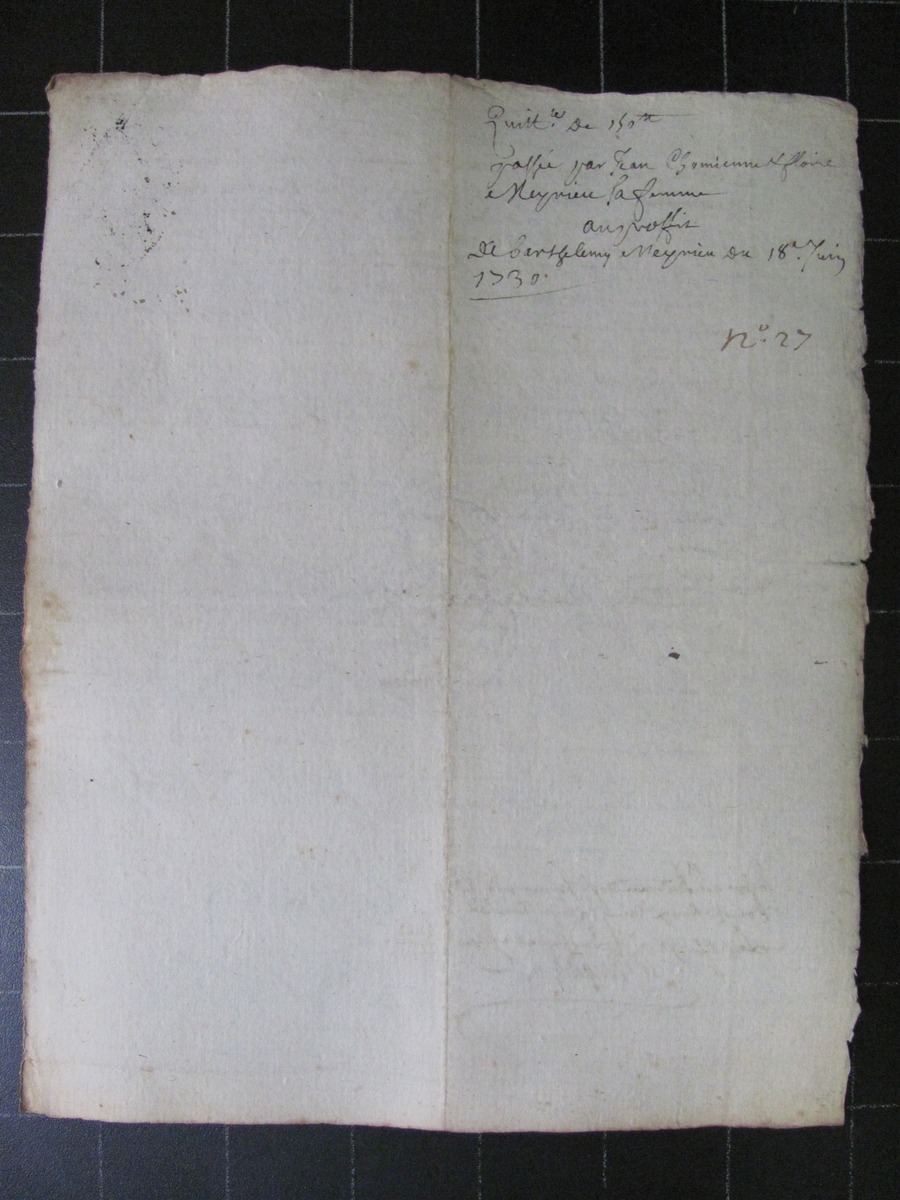 Quitt.ce de 150tt
passée par Jean & floirie
Meyrieu sa femme
au proffit
De barthelemy Meyrieu du 18e Juin
1730.
No. 27